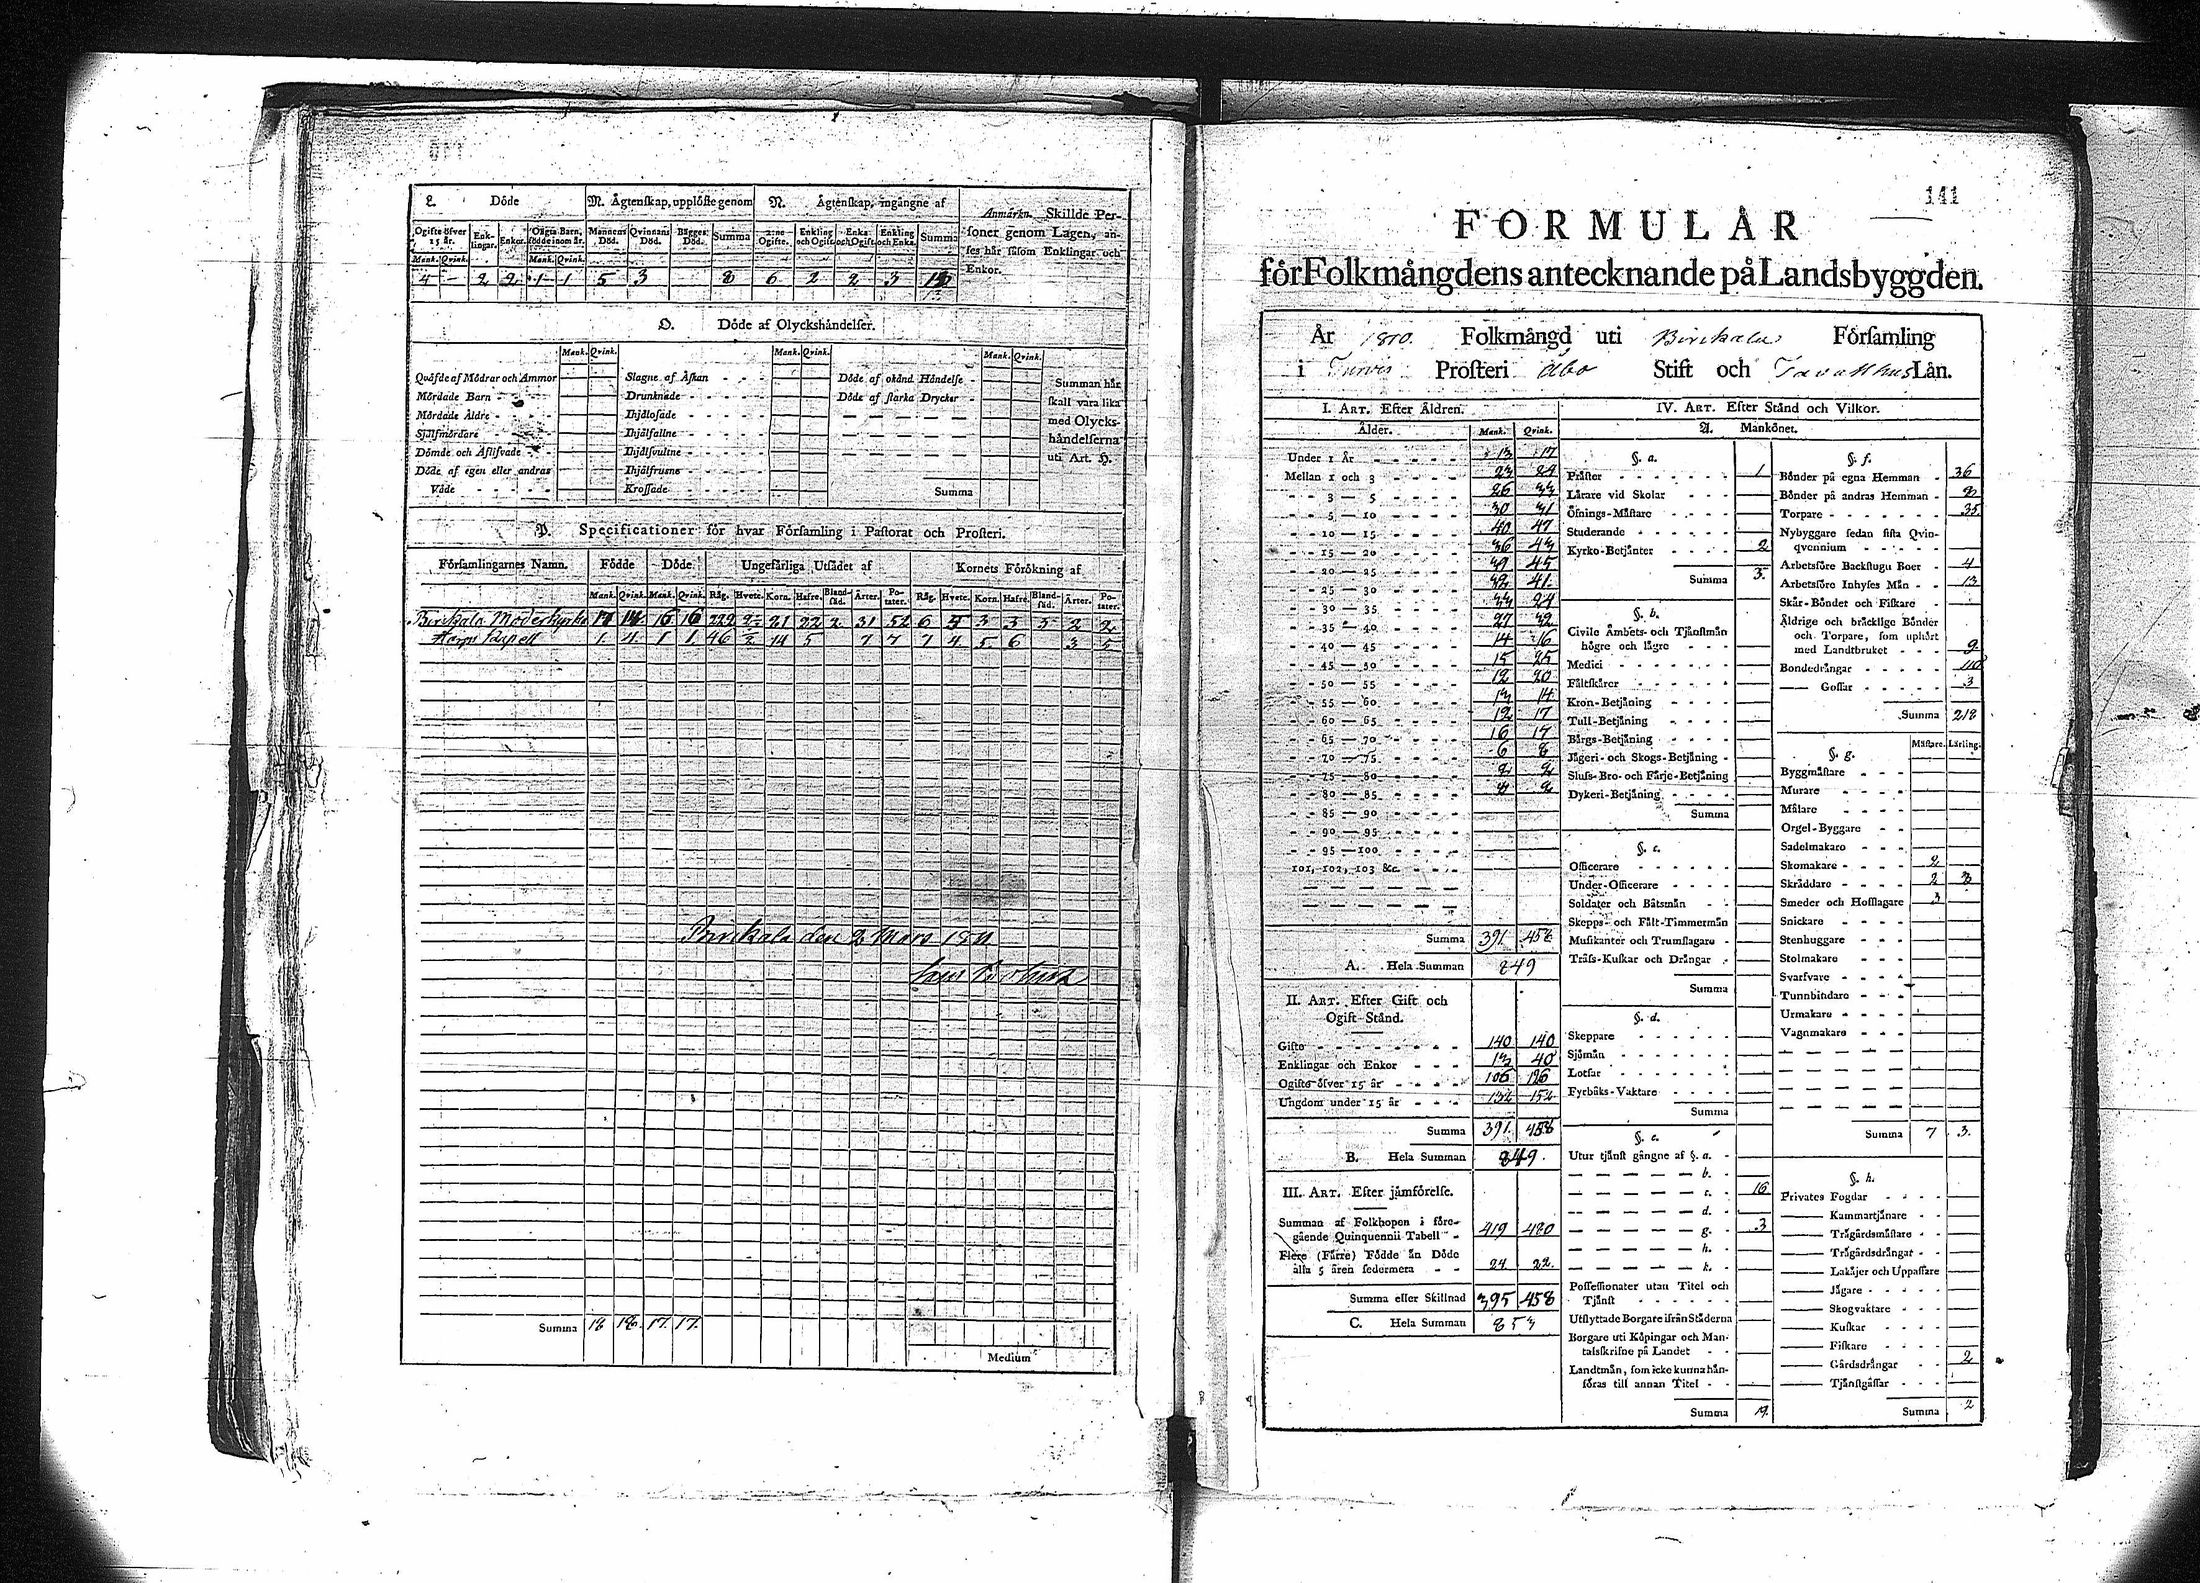 L. Döde
M. Ägtenskap, upplöste genom
N. Ägtenskap, ingångne af
Anmärkn. Skillde Per-
soner genom Lagen, an-
ses här såsom Enklingar och
Enkor.
Ogifte öfver 15 år.
Enk-lingar.
Enkor.
Oägta Barn, födde inom år.
Mannens Död.
Qvinnans Död.
Bägges Död.
Summa
2:ne Ogifte.
Enkling och Ogift.
Enka och Ogift.
Enkling och Enka.
Summa
Mank. Qvink. Mank. Qvink.
4 - 2 2 1 1 5 3 8 6 2 2 3
O. Döde af Olyckshändelser.
Mank. Qvink. Mank. Qvink. Mank. Qvink.
Quäfde af Mödrar och Ammor
Mördade Barn
Mördade Äldre
Sjelfmördare
Dömde och Aflifvade
Döde af egen eller andras
Våde
Slagne af Åskan
Drunknade
Ihjälfrusne
Krossade
Döde af okänd Händelse
Döde af starka Drycker
Summa
Summan här
skall vara lika
med Olycks-
händelserna
uti Art. H.
P. Specificationer för hvar Församling i Pastorat och Prosteri.
Församlingarnes Namn. Födde Döde. Ungefärliga Utsädet af Kornets Förökning af
Mank. Qvink. Mank. Qvink. Råg. Hvete. Korn. Hafre. Bland-säd. Ärter. Po-tater. Råg. Hvete. Korn. Hafre. Bland-säd. Ärter. Po-tater.
Birckala Moderkyrka 17 14 16 16 31 52 6 3 3 5 2 2
Harju Capell 1 4 1 1 46 14 5 7 7 7 4 5 6 3 5
Birckala den 2 Mars 1811
Summa 18 18 17 17
Medium
141
FORMULÄR
för Folkmängdens antecknande på Landsbyggden.
År 1810. Folkmängd uti Birckala Församling
i Prosteri Åbo Stift och Tavasthus Län.
I. ART. Efter Åldren.
Ålder. Mank. Qvink.
Under 1 År 13 17
Mellan 1 och 3 23 24
3 — 5 26 33
5 — 10 30 31
10 — 15 40 47
15 — 20 36 43
20 — 25 39 45
25 — 30 32 41
30 — 35 33 24
35 — 40 27 32
40 — 45 14 16
45 — 50 15 25
50 — 55 12 20
55 — 60 13 14
60 — 65 12 17
65 — 70 16 17
70 — 75 6 8
75 — 80 2 2
80 — 85 2
85 — 90
90 — 95
95 — 100
101, 102, 103 &c.
Summa 391 458
A. Hela Summan 849
II. ART. Efter Gift och
Ogift Stånd.
Gifte 140 140
Enklingar och Enkor 13 40
Ogifte öfver 15 år 106 126
Ungdom under 15 år 132 152
Summa 391 458
B. Hela Summan 849.
III. ART. Efter jämförelse.
Summan af Folkhopen i före-
gående Quinquennii Tabell 419 480
Flere (Färre) Födde än Döde
alla 5 åren sedermera 24 22
Summa eller Skillnad 395 458
C. Hela Summan 853
IV. ART. Efter Stånd och Vilkor.
A. Mankönet.
§. a.
Präster 1
Lärare vid Skolar
Öfnings-Mästare
Studerande
Kyrko-Betjänter 2
Summa 3.
§. b.
Civile Ämbets- och Tjänstmän
högre och lägre
Medici
Fältskärer
Kron-Betjäning
Tull-Betjäning
Bärgs-Betjäning
Jägeri- och Skogs-Betjäning
Sluss- Bro- och Färje-Betjäning
Dykeri-Betjäning
Summa
§. c.
Officerare
Under-Officerare
Soldater och Båtsmän
Skepps- och Fält-Timmermän
Musikanter och Trumslagare
Träss-Kuskar och Drängar
Summa
§. d.
Skeppare
Sjömän
Lotsar
Fyrbåks-Vaktare
Summa
§. e.
Utur tjänst gångne af §. a.
b.
c. 16
d.
g. 3
h.
k.
Possessionater utan Titel och
Tjänst
Utflyttade Borgare ifrån Städerna
Borgare uti Köpingar och Man-
talsskrifne på Landet
Landtmän, som icke kunna hän-
föras till annan Titel
Summa 19
§. f.
Bönder på egna Hemman 36
Bönder på andras Hemman 8
Torpare 35
Nybyggare sedan sista Qvin-
qvennium
Arbetsföre Backstugu Boer 4
Arbetsföre Inhyses Män 13
Skär-Bönder och Fiskare
Äldrige och bräcklige Bönder
och Torpare, som uphört
med Landtbruket 9
Bondedrängar 110
Gossar 3
Summa 218
Mästare. Lärling.
§. g.
Byggmästare
Murare
Målare
Orgel-Byggare
Sadelmakare
Skomakare 2
Skräddare 2 3
Smeder och Hofslagare 3
Snickare
Stenhuggare
Stolmakare
Svarfvare
Tunnbindare
Urmakare
Vagnmakare
Summa 7 3.
§. h.
Privates Fogdar
Kammartjänare
Trägårdsmästare
Trägårdsdrängar
Lakäjer och Uppassare
Jägare
Skogvaktare
Kuskar
Fiskare
Gårdsdrängar 2
Tjänstgossar
Summa 2